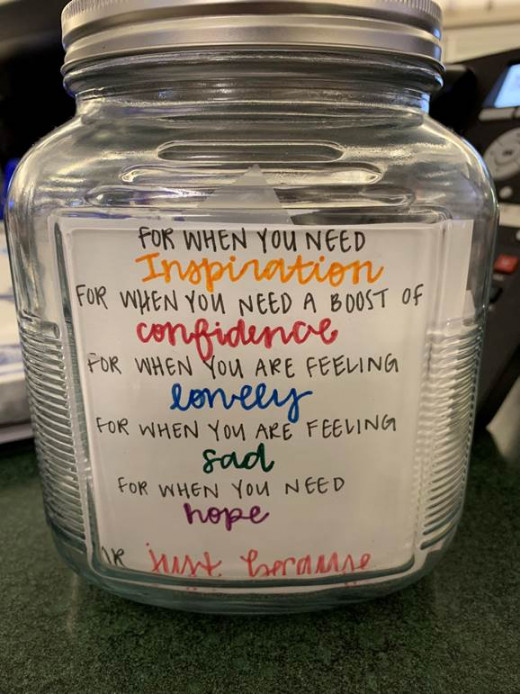 FOR WHEN YOU NEED
Inspiration
FOR WHEN YOU NEED A BOOST OF
confidence
FOR WHEN YOU ARE FEELING
lonely
FOR WHEN YOU ARE FEELING
sad
FOR WHEN YOU NEED
hope
OR just because